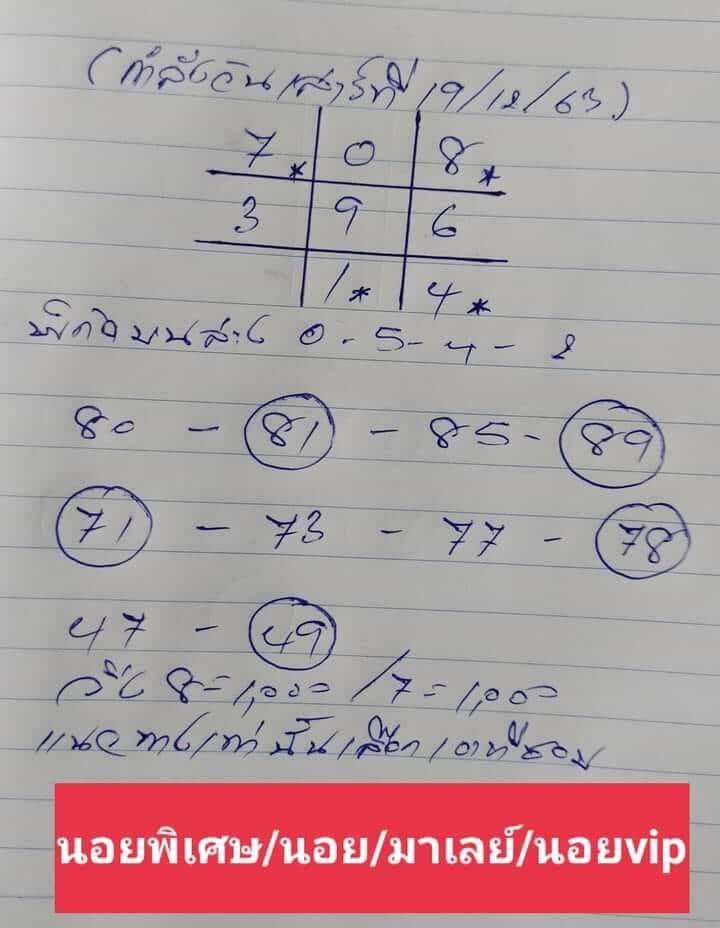 (กำลังวันเสาร์ที่ 19/12/63)
7* 0 8*
3 9 6
1* 4*
0-5-4-8
80 - 81 - 85 - 89
71 - 73 - 77 - 78
47 - 49
วิ่ง 8=1,000 /7=1,000
แนวทางเท่านั้นเลือกเอาที่ชอบ
นอยพิเศษ/นอย/มาเลย์/นอยvip